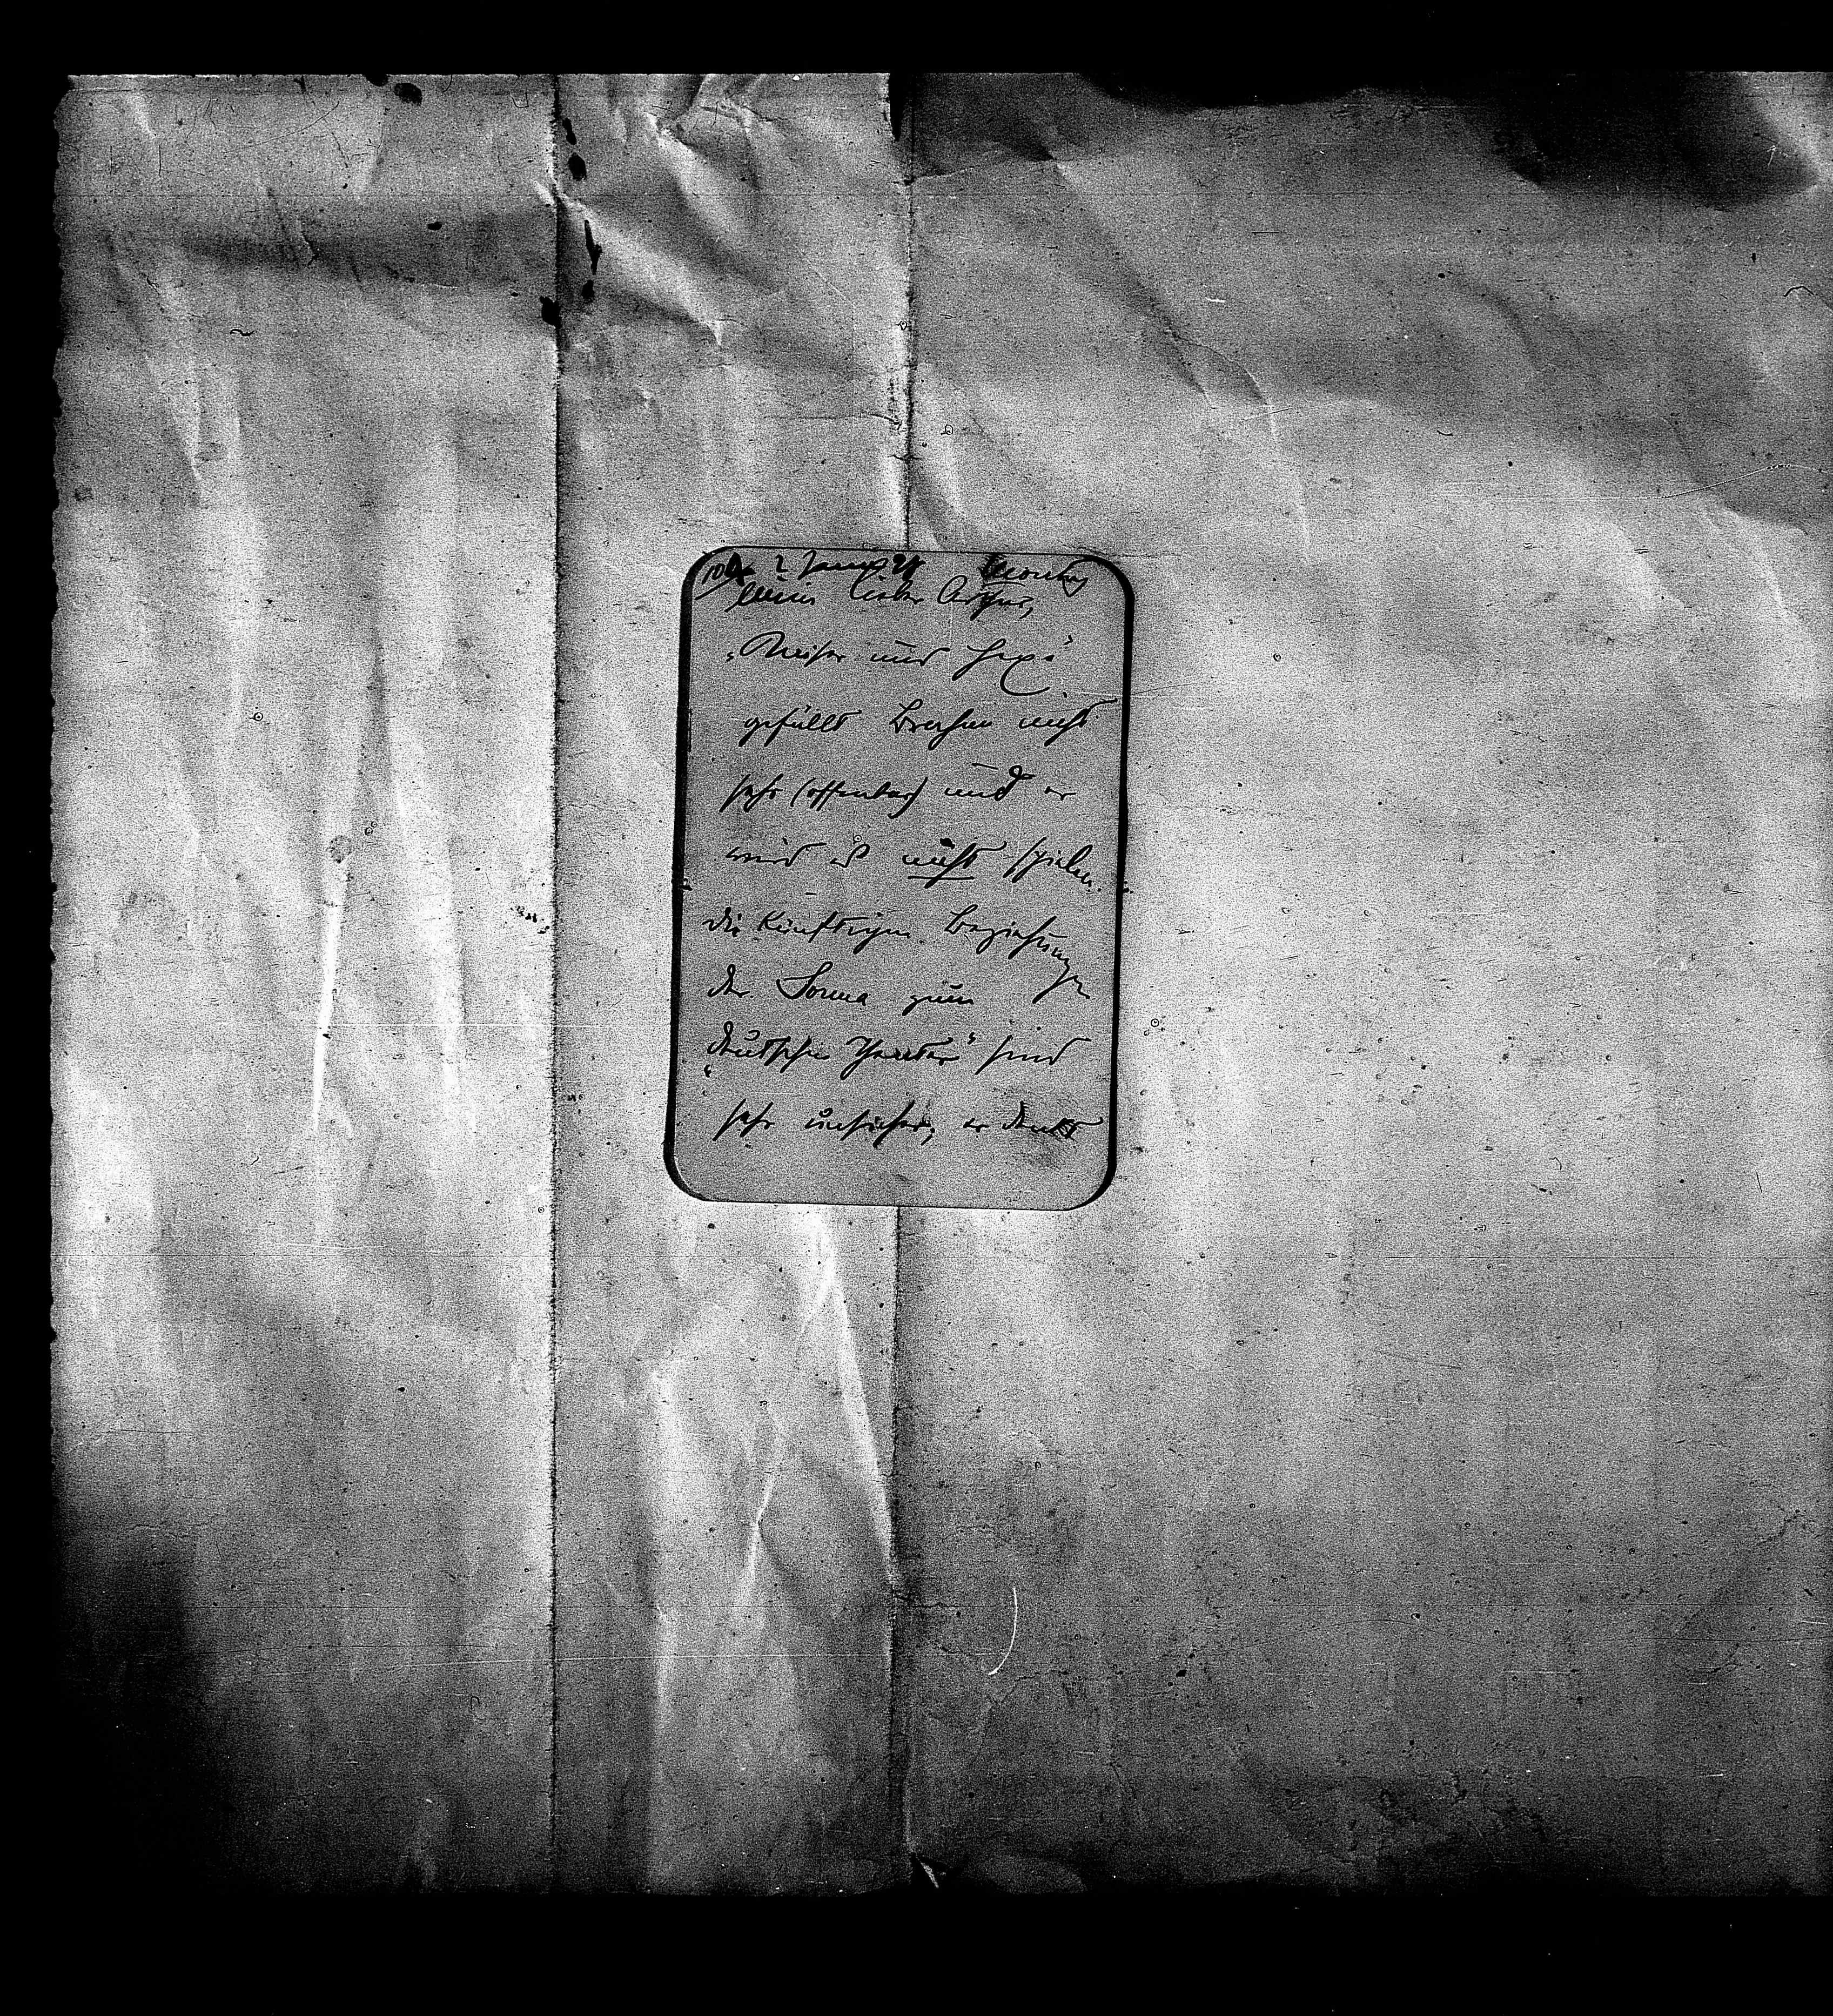 2 Januar 98 Montag
Mein lieber Arthur,
„Kaiser und Hexe“
gefällt Brahm nicht
sehr (offenbar) und er
wird es nicht spielen.
die künftigen Beziehungen
der Sorma zum
„deutschen Theater“ sind
sehr unsicher; er denkt